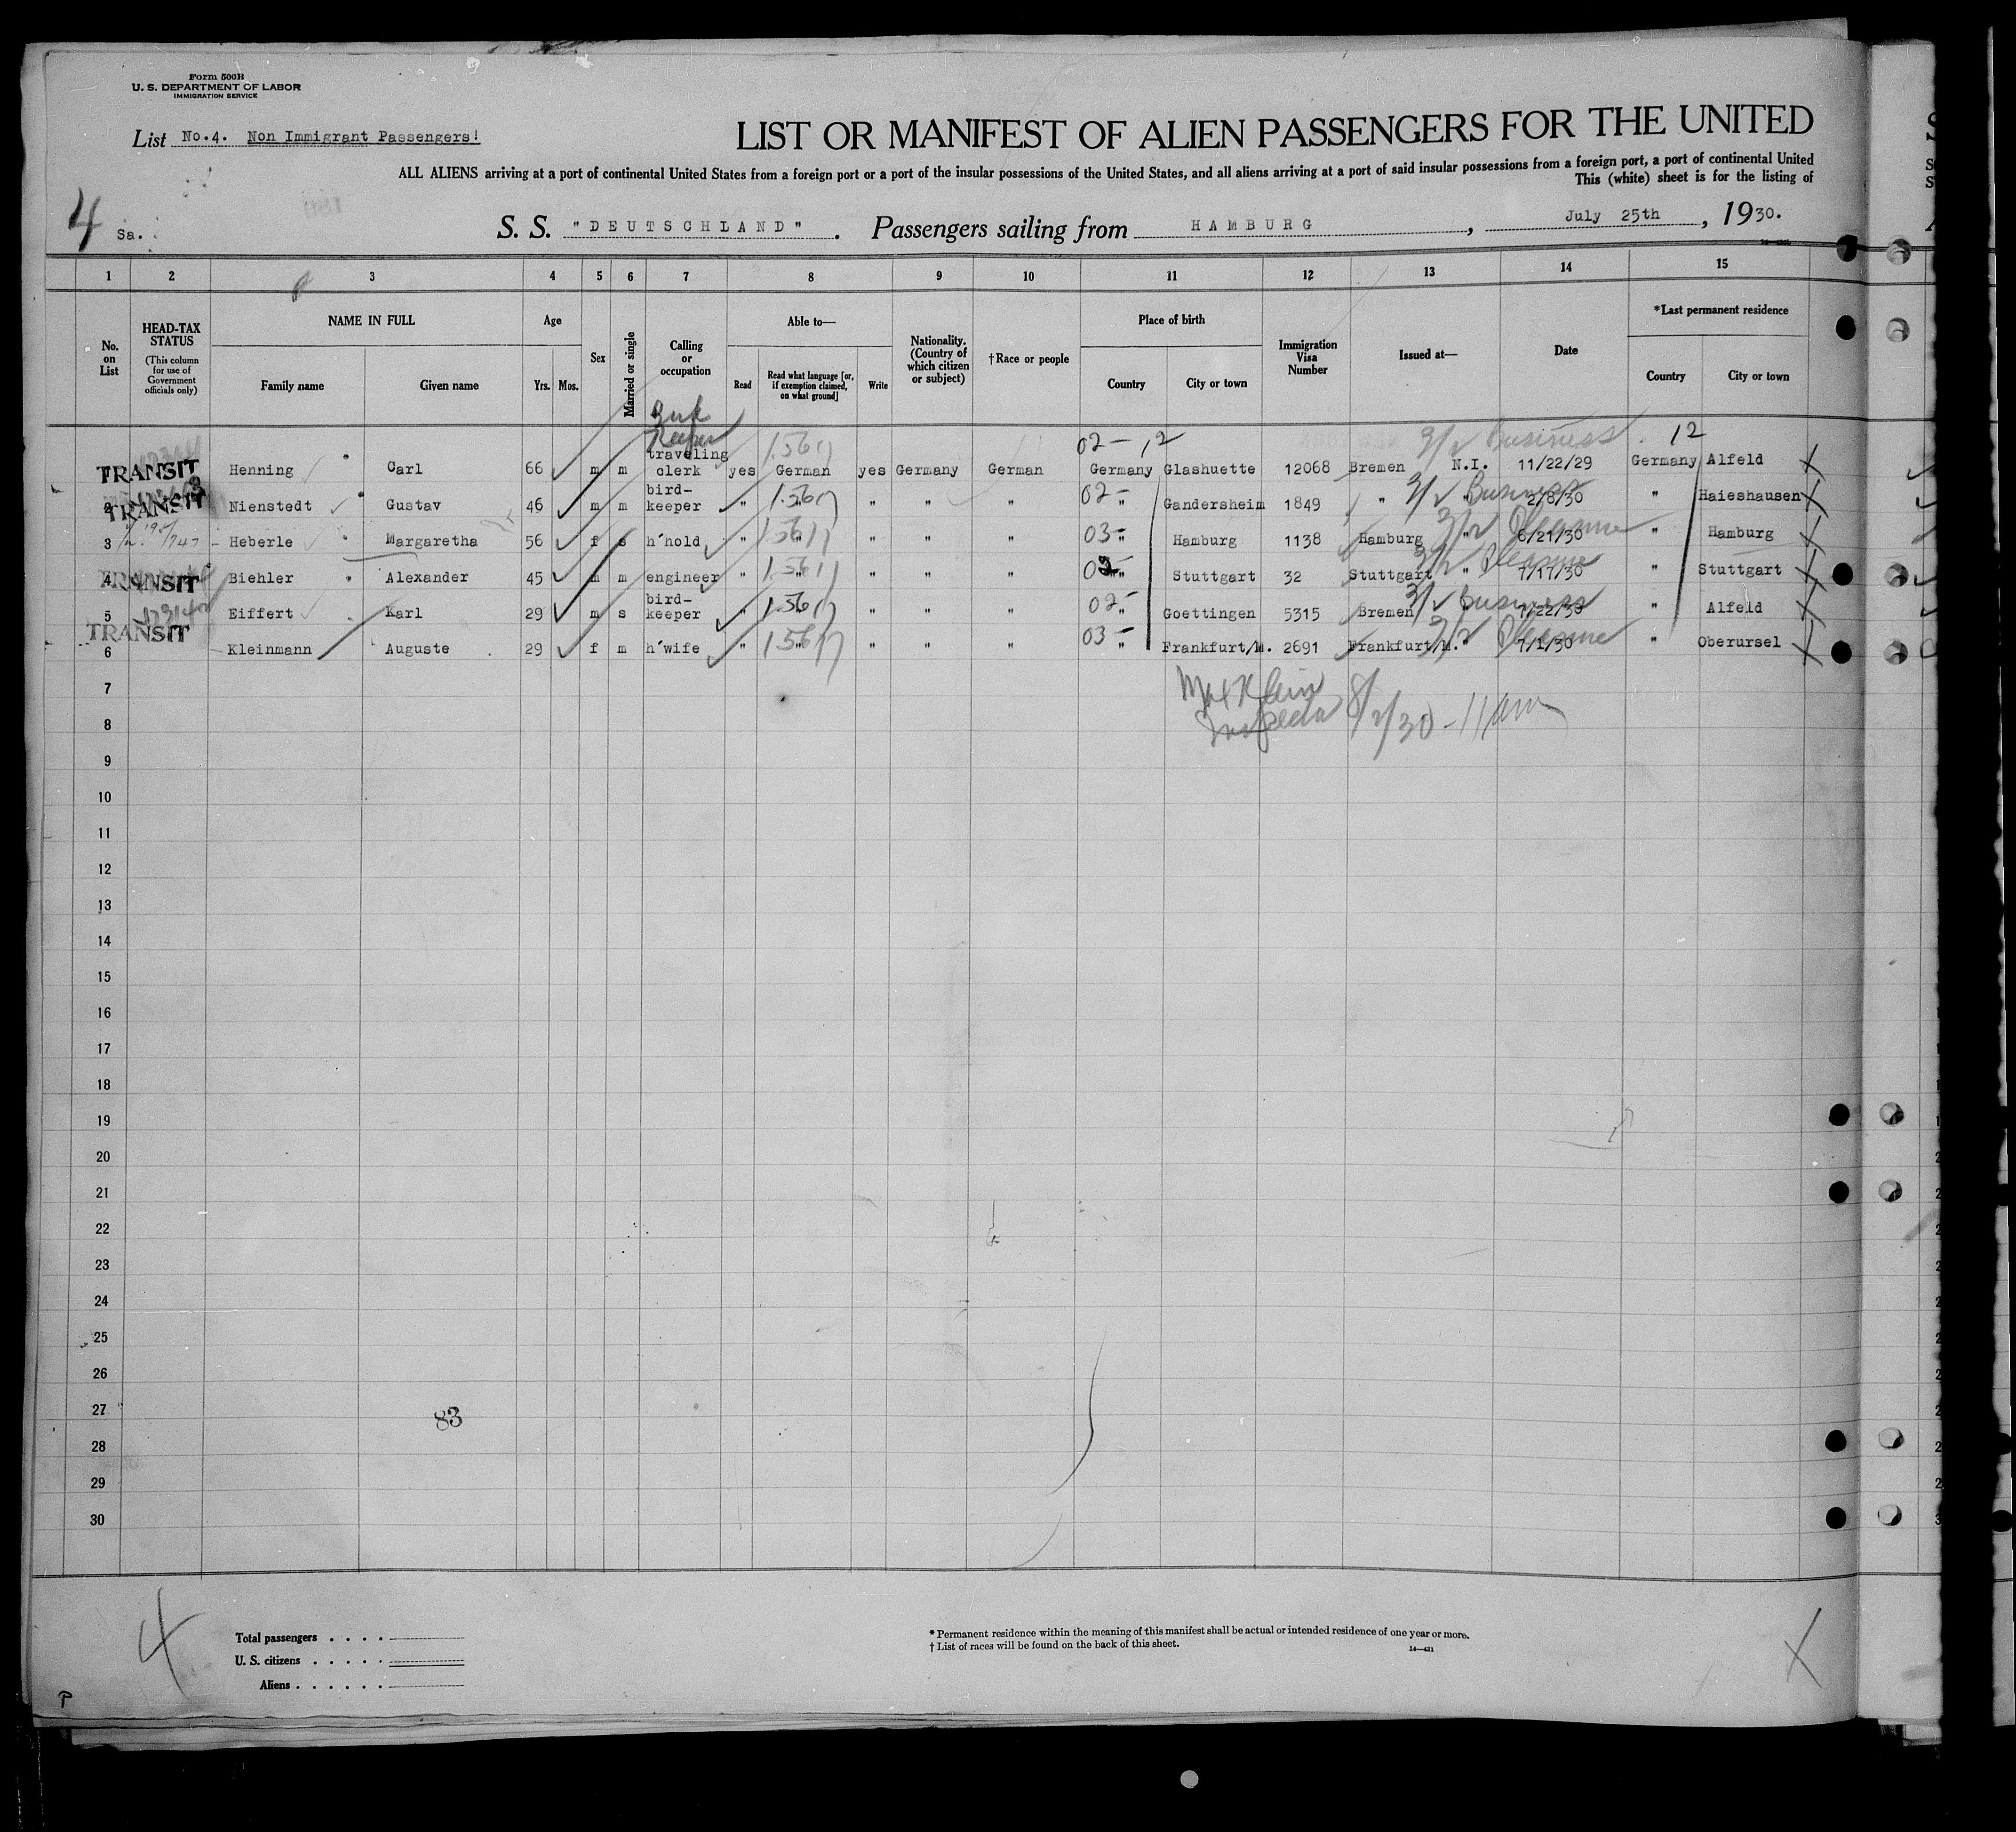 Form 500B
U. S. DEPARTMENT OF LABOR
IMMIGRATION SERVICE
List No.4. Non Immigrant Passengers!
LIST OR MANIFEST OF ALIEN PASSENGERS FOR THE UNITED
ALL ALIENS arriving at a port of continental United States from a foreign port or a port of the insular possessions of the United States, and all aliens arriving at a port of said insular possessions from a foreign port, a port of continental United
This (white) sheet is for the listing of
4 Sa.
S. S. "DEUTSCHLAND". Passengers sailing from HAMBURG, July 25th, 1930.
1 2 3 4 5 6 7 8 9 10 11 12 13 14 15
No. on List
HEAD-TAX STATUS (This column for use of Government officials only)
NAME IN FULL Family name Given name
Age Yrs. Mos.
Sex
Married or single
Calling or occupation
Able to— Read Read what language [or, if exemption claimed, on what ground] Write
Nationality. (Country of which citizen or subject)
†Race or people
Place of birth Country City or town
Immigration Visa Number
Issued at—
Date
*Last permanent residence Country City or town
Keeper
02- 12 3/2 Business 12
TRANSIT Henning Carl 66 m m traveling clerk yes German yes Germany German Germany Glashuette 12068 Bremen N.I. 11/22/29 Germany Alfeld
2 TRANSIT Nienstedt Gustav 46 m m bird-keeper " " " " " 02- " Gandersheim 1849 " " 3/2 Business 2/8/30 " Haieshausen
3 Heberle Margaretha 56 f s h'hold " " " " " 03- " Hamburg 1138 Hamburg " 3/2 Pleasure 6/21/30 " Hamburg
4 TRANSIT Biehler Alexander 45 m m engineer " " " " " " Stuttgart 32 Stuttgart " 3/2 Pleasure 7/17/30 " Stuttgart
5 Eiffert Karl 29 m s bird-keeper " " " " " 02- " Goettingen 5315 Bremen " 3/2 Business 7/22/30 " Alfeld
TRANSIT
6 Kleinmann Auguste 29 f m h'wife " " " " " 03- " Frankfurt/M. 2691 Frankfurt/M. " 3/2 Pleasure 7/1/30 " Oberursel
7
Inspector 8/2/30 - 11 am
8
9
10
11
12
13
14
15
16
17
18
19
20
21
22
23
24
25
26
27
83
28
29
30
4
Total passengers . . . .
U. S. citizens . . . . .
Aliens . . . . . .
* Permanent residence within the meaning of this manifest shall be actual or intended residence of one year or more.
† List of races will be found on the back of this sheet.
14—431
P